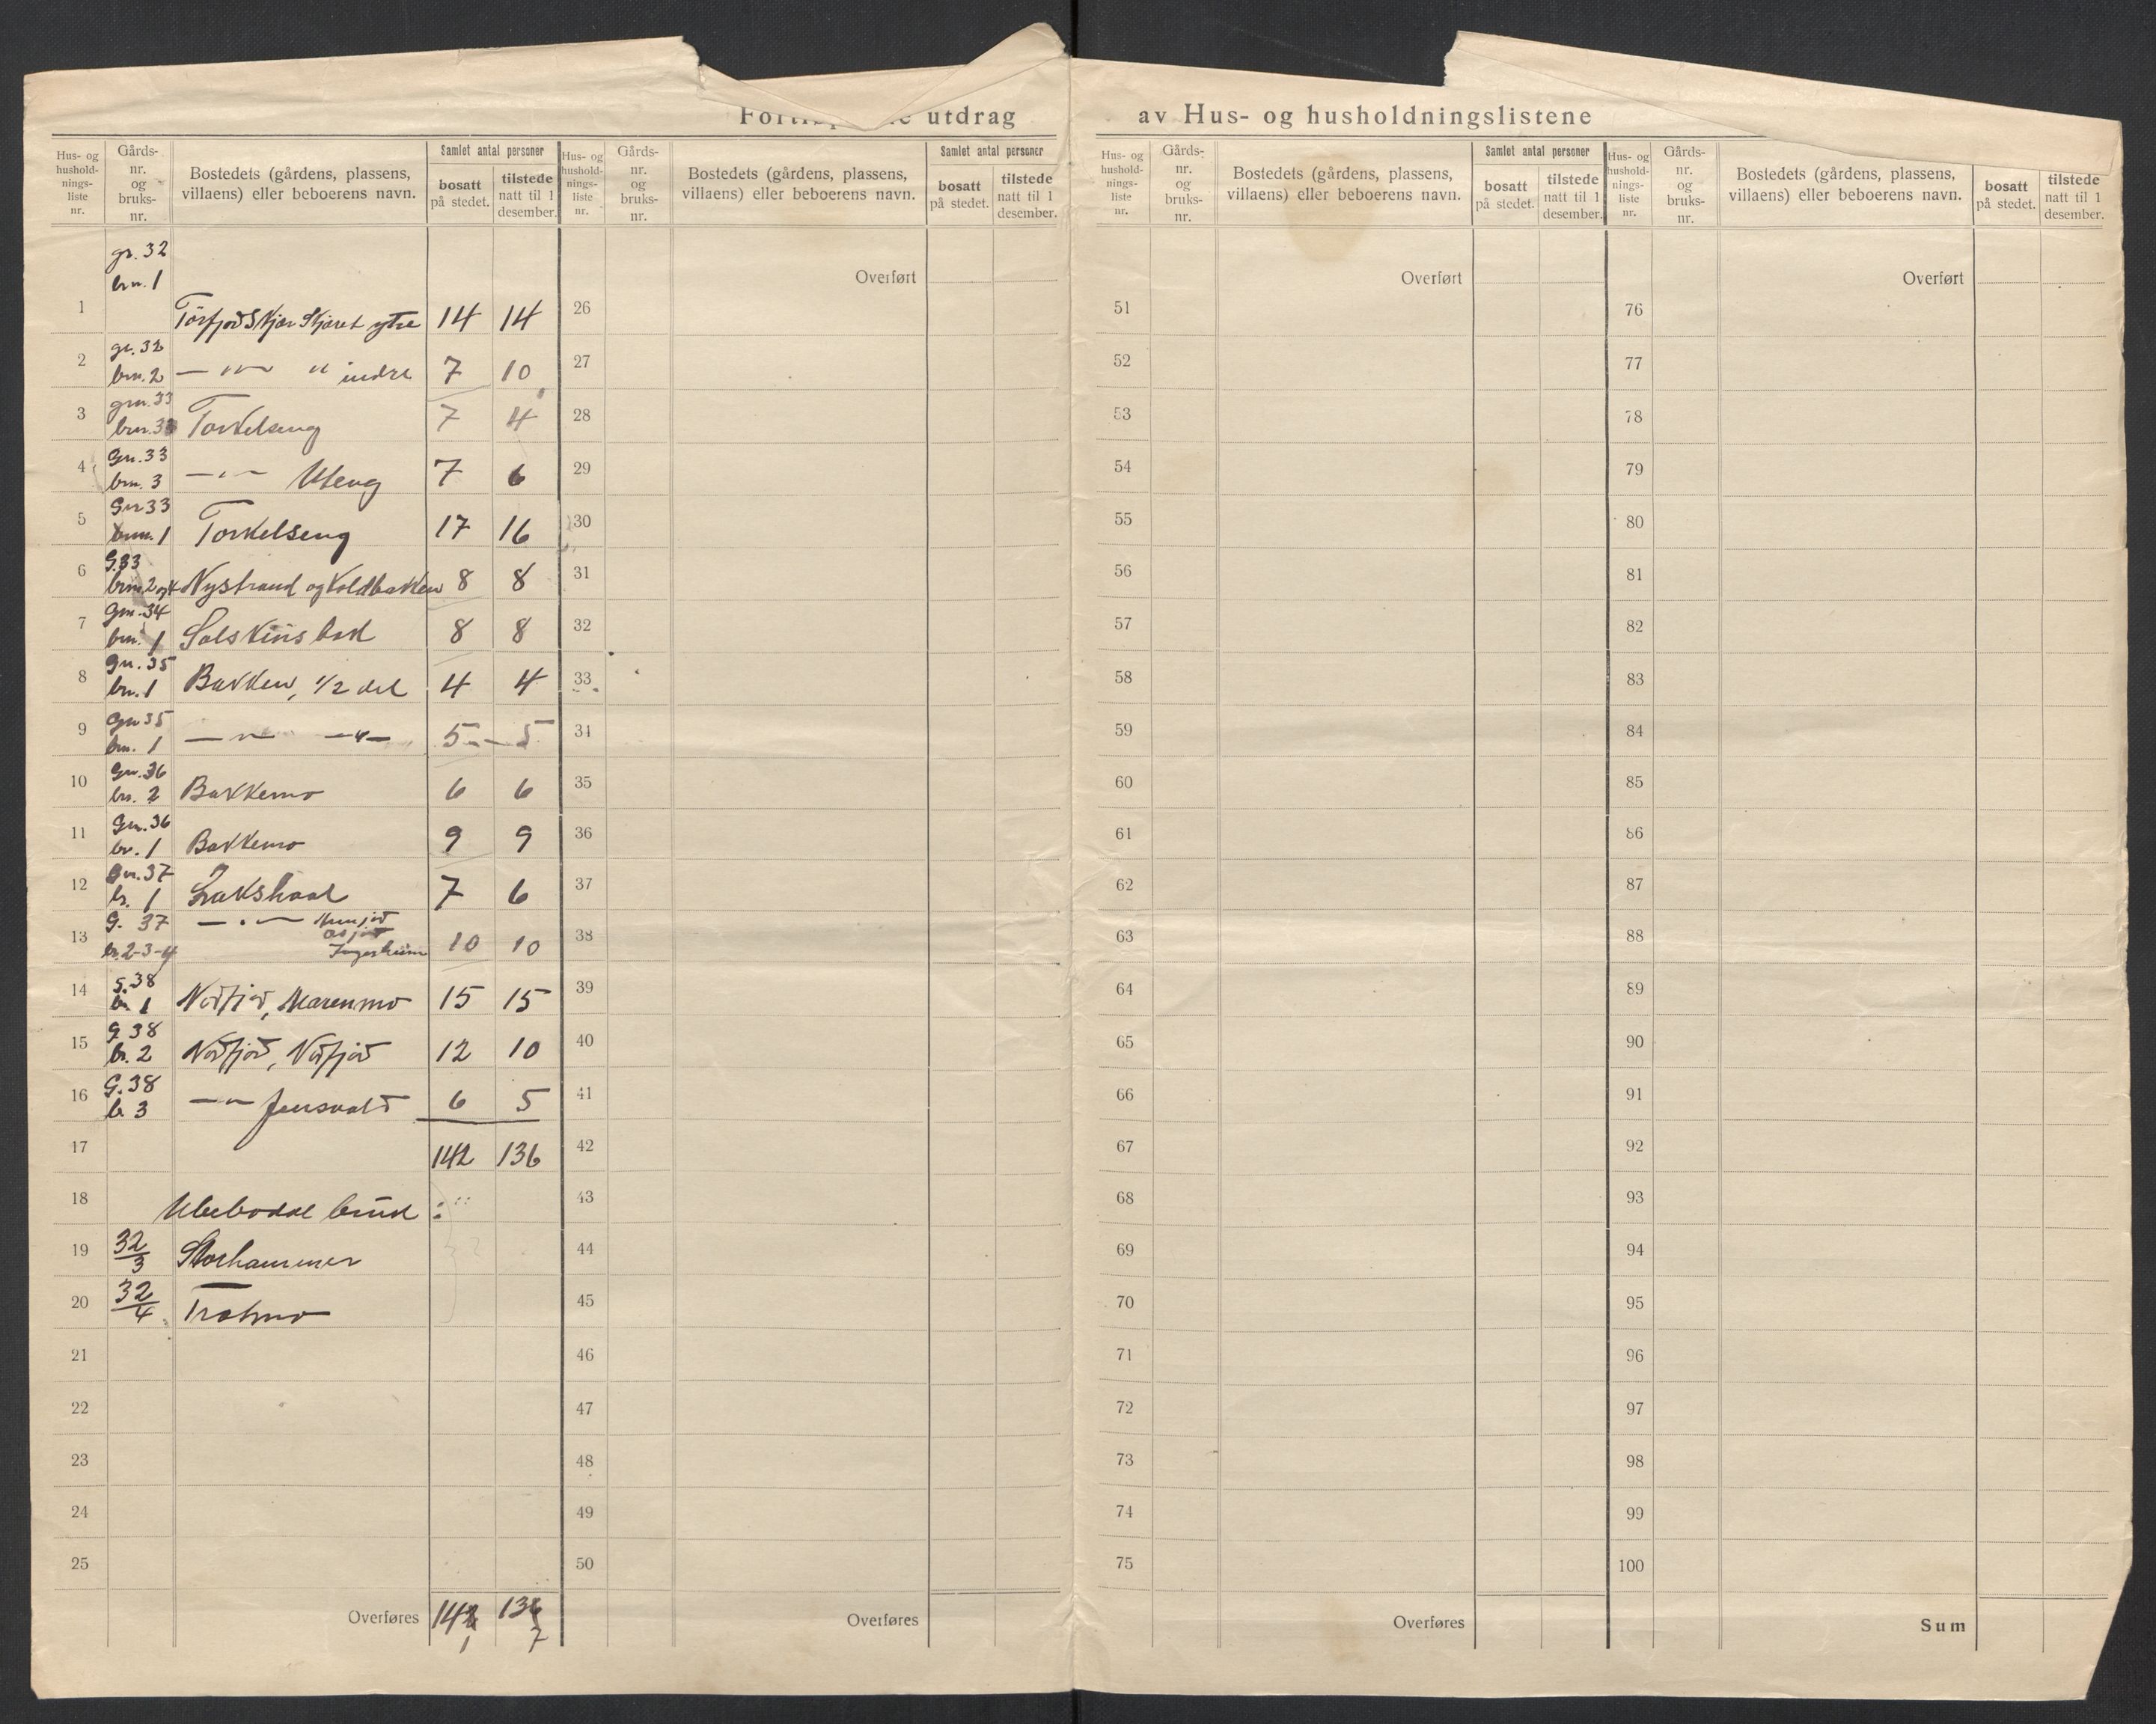 utdrag av Hus- og husholdningslistene
Hus- og hushold-nings-liste nr.
Gårds-nr. og bruks-nr.
Bostedets (gårdens, plassens, villaens) eller beboerens navn.
Samlet antal personer
bosatt på stedet.
tilstede natt til 1 desember.
Hus- og hushold-nings-liste nr.
Gårds-nr. og bruks-nr.
Bostedets (gårdens, plassens, villaens) eller beboerens navn.
Samlet antal personer
bosatt på stedet.
tilstede natt til 1 desember.
Hus- og hushold-nings-liste nr.
Gårds-nr. og bruks-nr.
Bostedets (gårdens, plassens, villaens) eller beboerens navn.
Samlet antal personer
bosatt på stedet.
tilstede natt til 1 desember.
Hus- og hushold-nings-liste nr.
Gårds-nr. og bruks-nr.
Bostedets (gårdens, plassens, villaens) eller beboerens navn.
bosatt på stedet.
tilstede natt til 1 desember.
gr. 32
brn. 1
1 ytre 14 14
gr. 32
2 brn. 2 — " — " indre 7 10
grn. 33
3 brn. 3 Torkelseng 7 4
Gn. 33
4 brn. 3 — " — Uteng 7 6
Gn 33
5 brn. 1 Torkelseng 17 16
G. 33
6 brn. 2 og 4 Nystrand og Koldbakken 8 8
Gn. 34
7 brn. 1 Solskinsbak 8 8
Gn. 35
8 bn. 1 Bakken, 1/2 del 4 4
Gn 35
9 bn. 1 — " — — " — 5 - 5
Gn. 36
10 bn. 2 Bakkemo 6 6
Gn. 36
11 br. 1 Bakkemo 9 9
Gn. 37
12 b. 1 Lakshaal 7 6
G. 37 — " —
13 b. 2-3-4 Ingerheim 10 10
G. 38
14 b 1 Nordfjord, Marenmo 15 15
G 38
15 b. 2 Nordfjord, Nordfjord 12 10
G. 38
16 b 3 — " — Jensvold 6 5
17 142 136
18 Ubebodde bruk :
19 32/3 Storhammer
20 32/4 Tratmo
21
22
23
24
25
Overføres 142 136
1 7
Overført
26
27
28
29
30
31
32
33
34
35
36
37
38
39
40
41
42
43
44
45
46
47
48
49
50
Overføres
Overført
51
52
53
54
55
56
57
58
59
60
61
62
63
64
65
66
67
68
69
70
71
72
73
74
75
Overføres
Overført
76
77
78
79
80
81
82
83
84
85
86
87
88
89
90
91
92
93
94
95
96
97
98
99
100
Sum